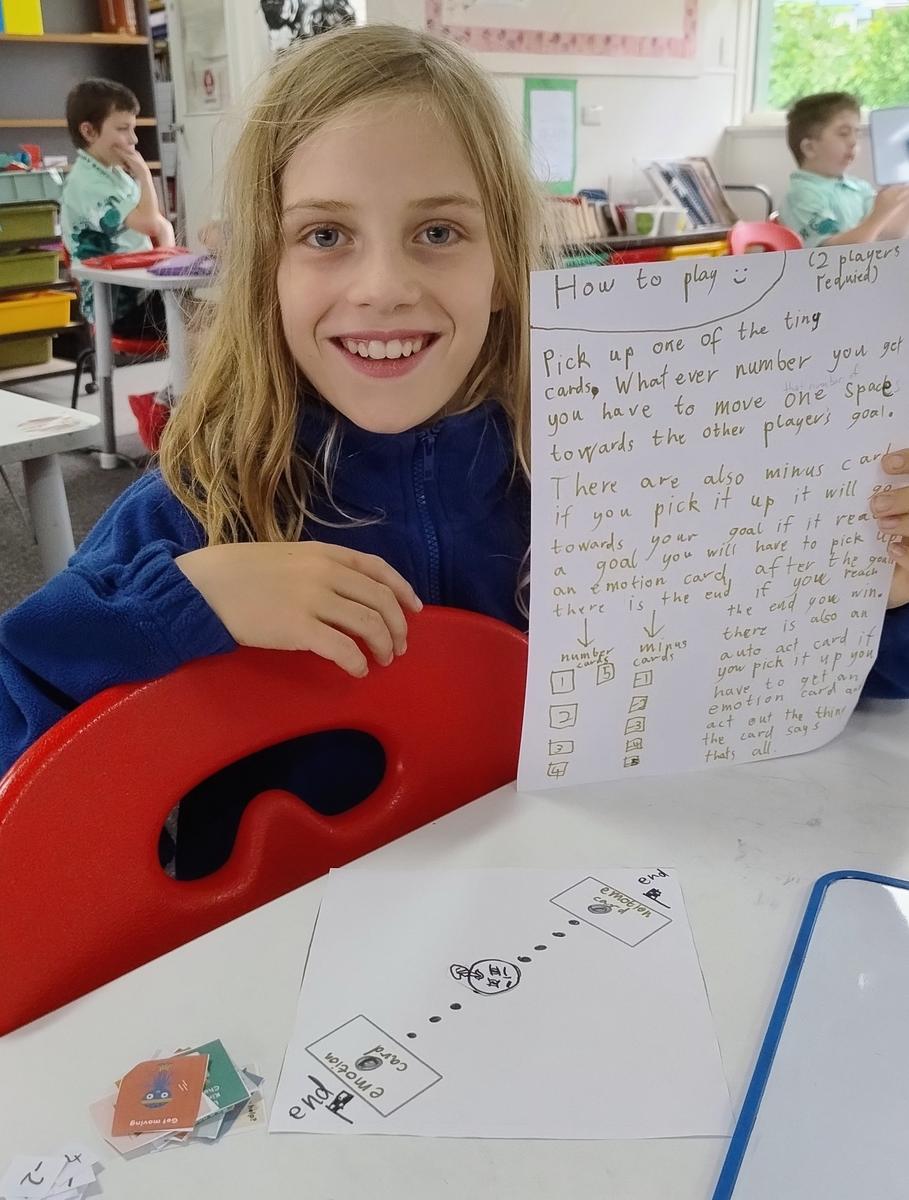 How to play
(2 players
requied)
Pick up one of the tiny
cards. What ever number you get
you have to move one spaces
that number of
towards the other player's goal.
There are also minus card
if you pick it up it will go
towards your goal if it rea
a goal you will have to pick up
an emotion card, after the goal
there is the end if you reach
the end you win.
there is also an
auto act card if
you pick it up you
have to get an
emotion card an
act out the thin
the card says
thats all.
number
cards
1
2
3
4
5
minus
cards
-1
-2
-3
-4
end
emotion
card
emotion
card
end
Get moving
help?
-2